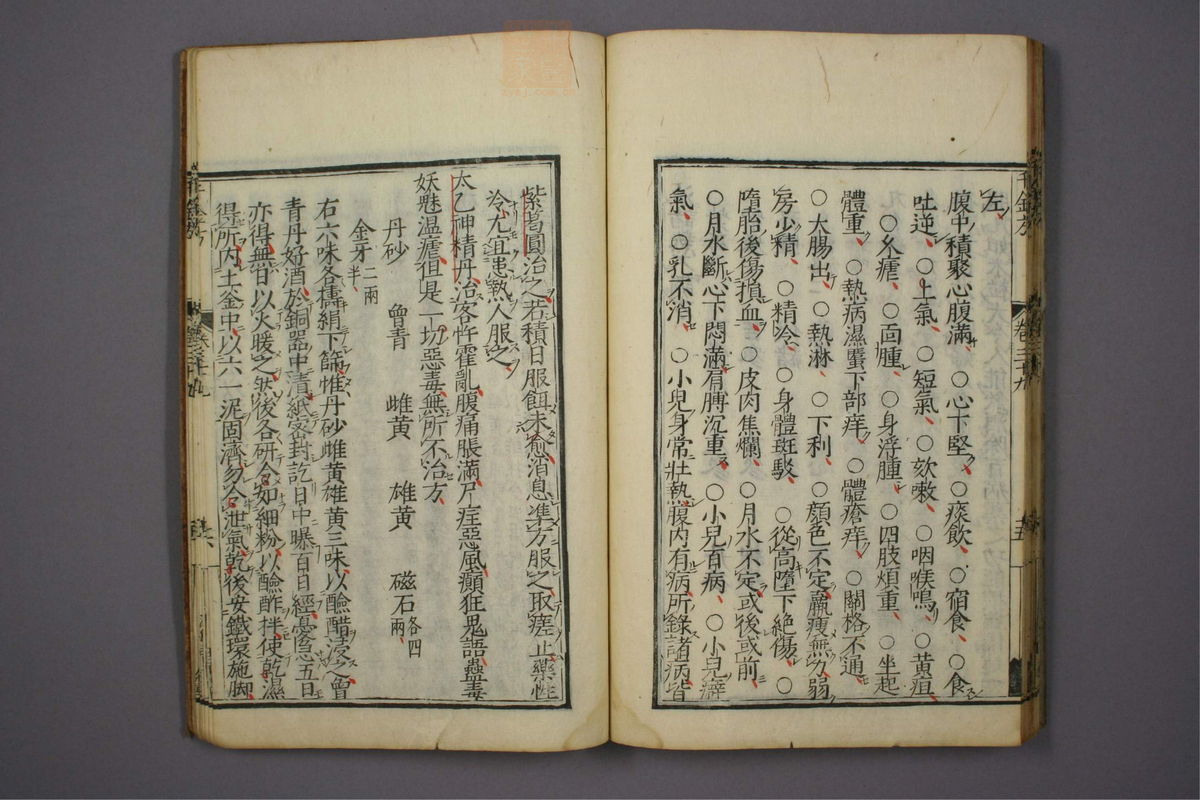 左
腹中積聚心腹滿 ○心下堅 ○痰飲 ○宿食 ○食
吐逆 ○上氣 ○短氣 ○欬嗽 ○咽喉鳴 ○黃疸
○久瘧 ○面腫 ○身浮腫 ○四肢煩重 ○坐起
體重 ○熱病濕䘌下部痒 ○體瘡痒 ○關格不通
○大腸出 ○熱淋 ○下利 ○顏色不定羸瘦無力弱
房少精 ○精冷 ○身體斑駁 ○從高墮下絕傷 ○
隋胎後傷損血 ○皮肉焦爛 ○月水不定或後或前
○月水斷心下悶滿肩膊沉重 ○小兒百病 ○小兒癖
氣 ○乳不消 ○小兒身常壯熱腹內有病所錄諸病皆
紫葛圓治之若積日服餌未愈消息準方服之取瘥止藥性
冷尤宜患熱人服之
太乙神精丹治客忤霍亂腹痛脹滿尸疰惡風癲狂鬼語蠱毒
妖魅溫瘧但是一切惡毒無所不治方
丹砂 曾青 雌黃 雄黃 磁石各四兩
金牙二兩半
右六味各擣絹下篩惟丹砂雌黃雄黃三味以醶醋浸令曾
青丹好酒於銅器中漬紙密封訖日中曝百日經憂急五日
亦得無日以火暖之然後各研令如細粉以醶酢拌使乾濕
得所內土釜中以六一泥固濟勿令泄氣乾後安鐵環施脚